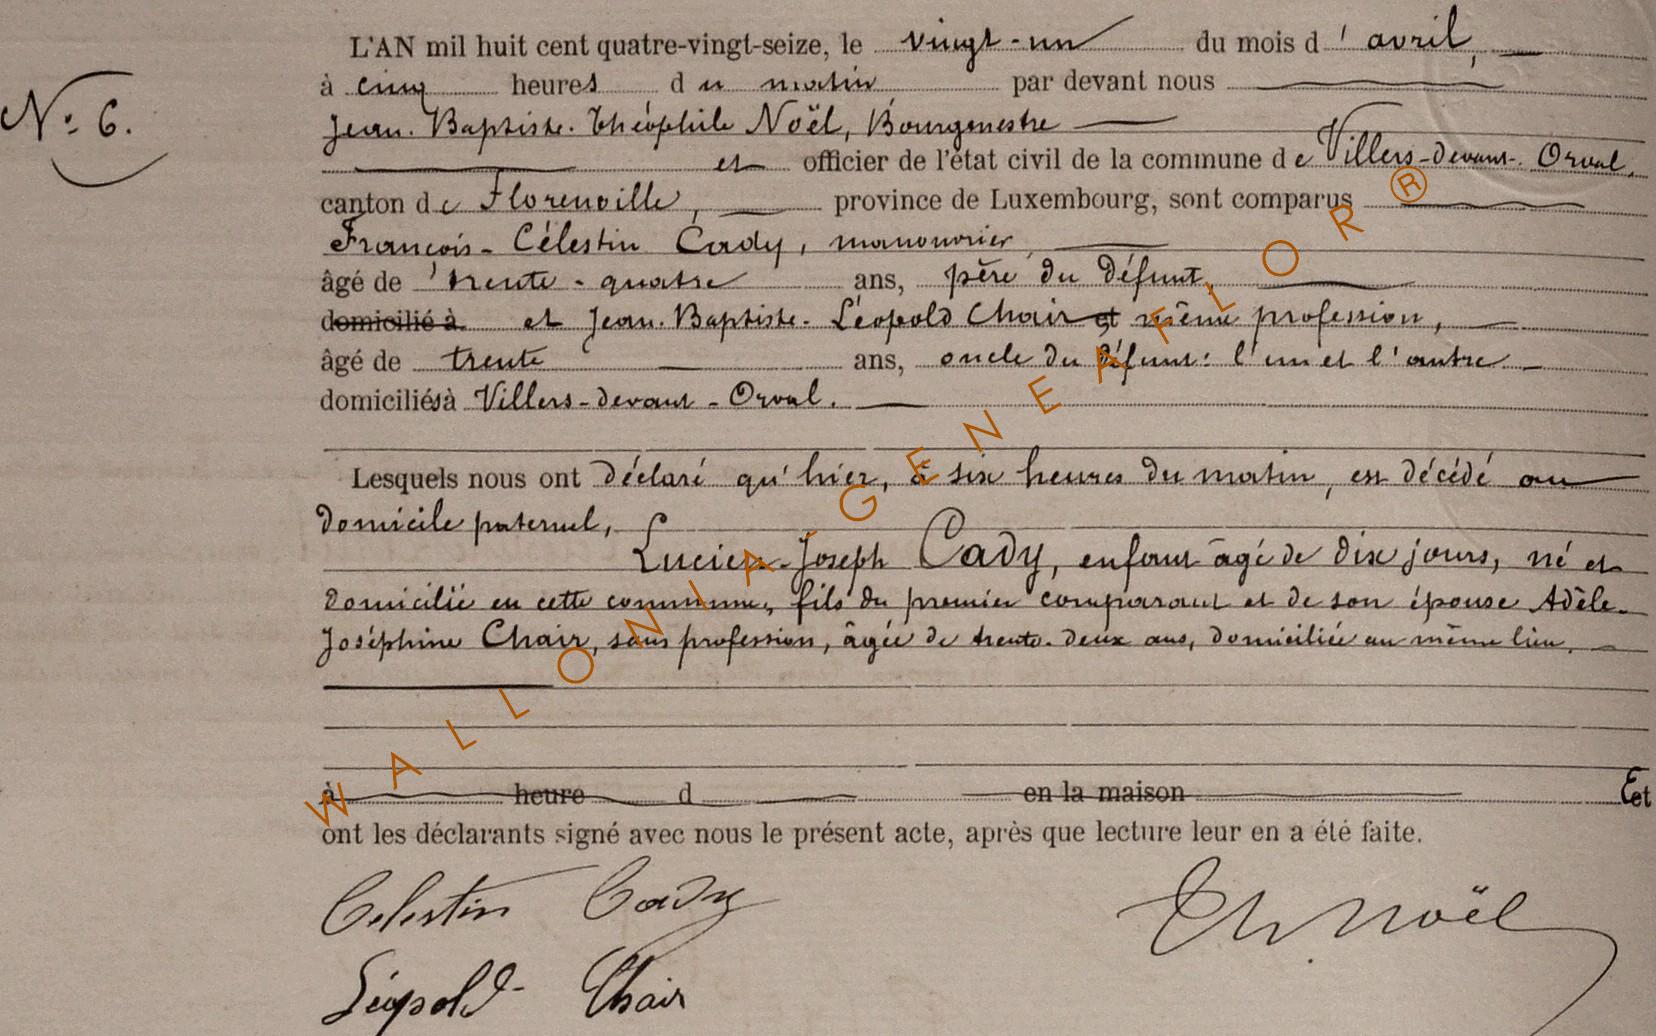 L'AN mil huit cent quatre-vingt-seize, le vingt-un du mois d' avril,
à cinq heures du matin par devant nous
N° 6.
Jean-Baptiste-Théophile Noël, Bourgmestre
et officier de l'état civil de la commune de Villers-devant-Orval,
canton de Florenville, province de Luxembourg, sont comparus
François-Célestin Cady, manouvrier
âgé de trente-quatre ans, père du défunt,
domicilié à et Jean-Baptiste-Léopold Chair et même profession,
âgé de trente ans, oncle du défunt: l'un et l'autre
domiciliés à Villers-devant-Orval.
Lesquels nous ont déclaré qu'hier, à six heures du matin, est décédé au
domicile paternel,
Lucien-Joseph Cady, enfant âgé de dix jours, né et
domicilié en cette commune, fils du premier comparant et de son épouse Adèle-
Joséphine Chair, sans profession, âgée de trente-deux ans, domiciliée au même lieu.
à heure d en la maison Et
ont les déclarants signé avec nous le présent acte, après que lecture leur en a été faite.
Celestin Cady
Th Noël
Léopold Chair
WALLONIA-GENEAFLOR®